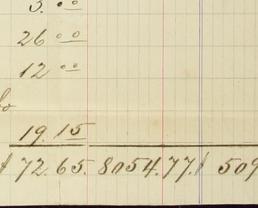 3. 00
26 00
12 00
do
19.15
72.65. 8054.77. 509